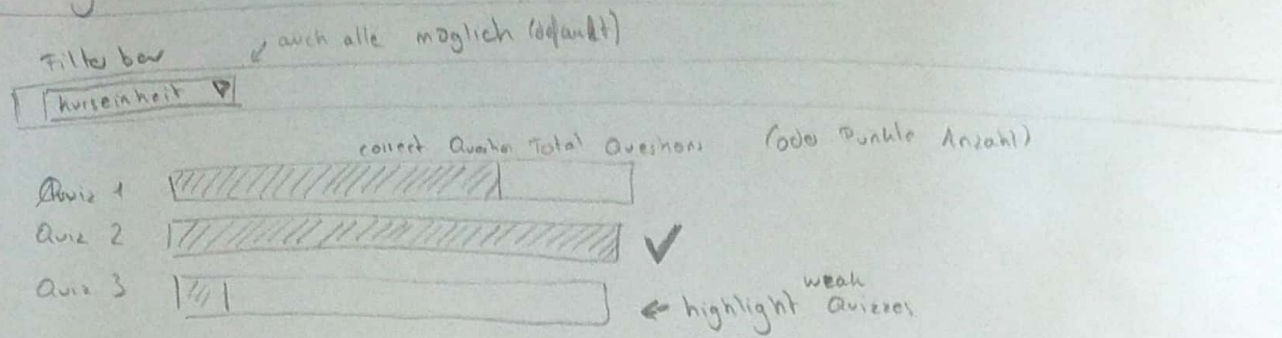 Filter bar
auch alle möglich (default)
Kurseinheit
correct Question Total Questions (oder Punkte Anzahl)
Quiz 1
Quiz 2
Quiz 3
highlight weak Quizzes